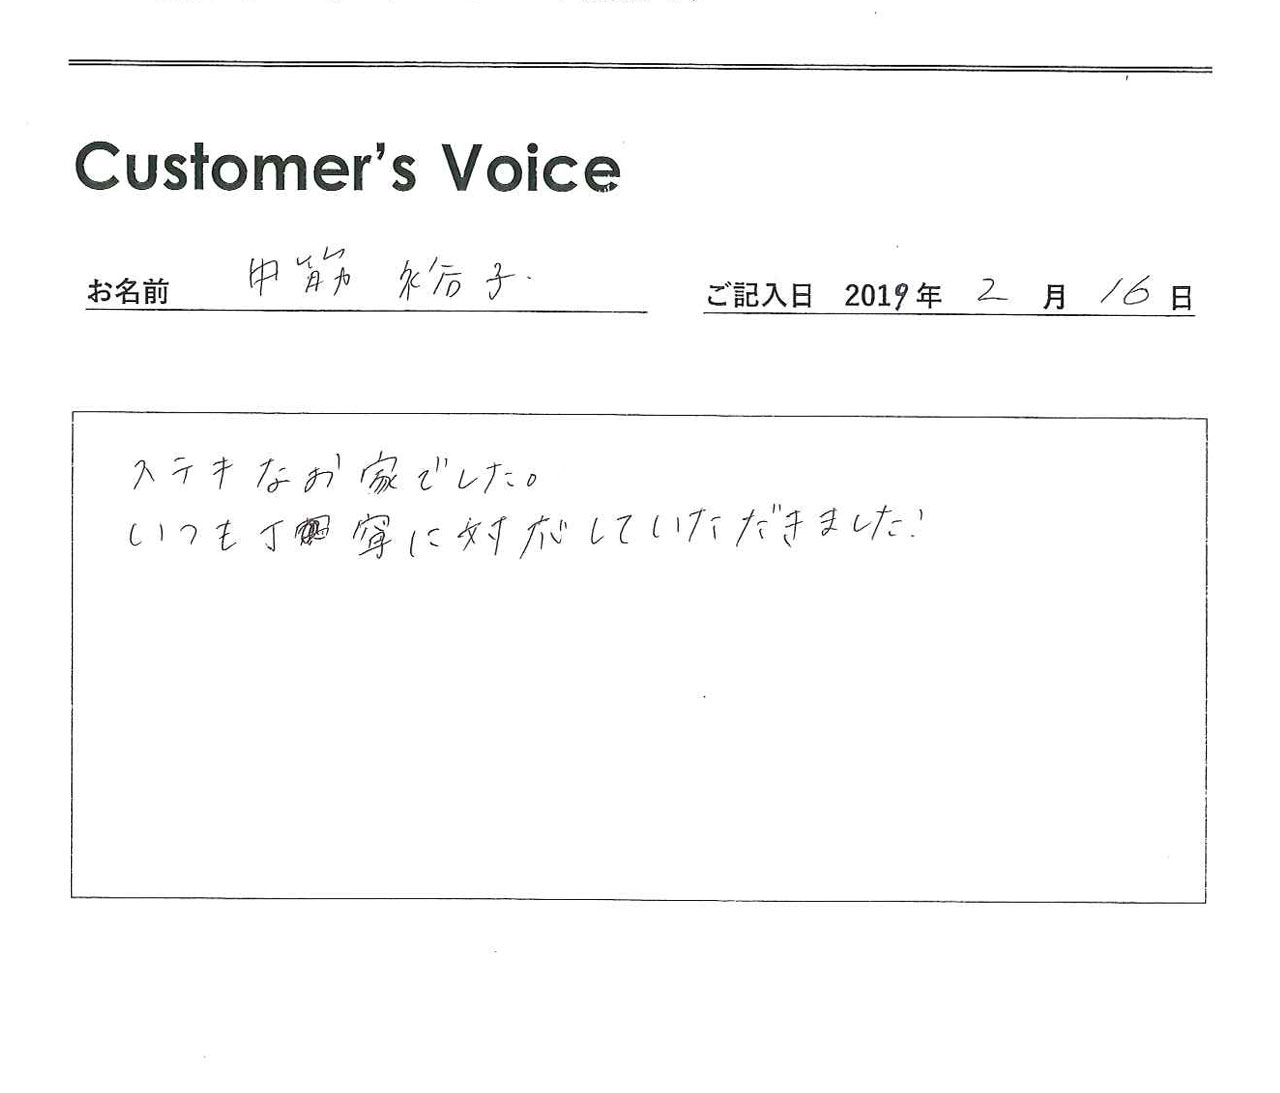 Customer's Voice
お名前 中筋 裕子
ご記入日 2019年 2月 16日
ステキなお家でした。
いつも丁寧に対応していただきました!